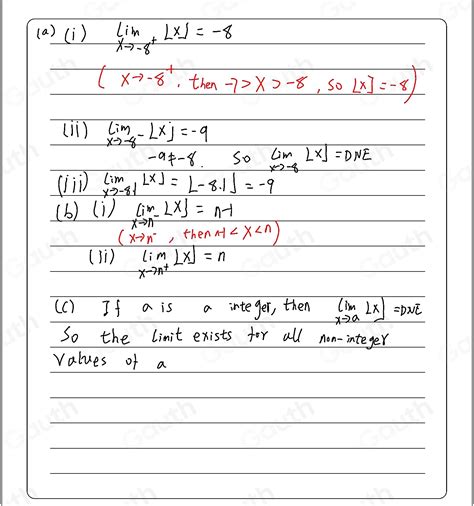 (a) (i) lim x→-8⁺ ⌊x⌋ = -8
( x→-8⁺, then -7>x>-8, so ⌊x⌋=-8)
(ii) lim x→-8⁻ ⌊x⌋ = -9
-9≠-8. So lim x→-8 ⌊x⌋ = DNE
(iii) lim x→-8.1 ⌊x⌋ = ⌊-8.1⌋ = -9
(b) (i) lim x→n⁻ ⌊x⌋ = n-1
(x→n⁻, then n-1<x<n)
(ii) lim x→n⁺ ⌊x⌋ = n
(c) If a is a integer, then lim x→a ⌊x⌋ = DNE
So the limit exists for all non-integer
values of a